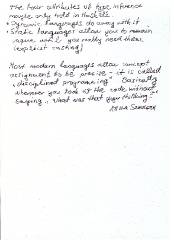 The four attributes of type inference
maybe only told in Haskell
• Dynamic languages do away with it
• Static languages allow you to remain
vague until you really need them
(explicit casting)
Most modern languages allow concept
assignment to be precise - it is called
"disciplined programming". Basically
whenever you look at the code without
saying "What was that guy thinking?"